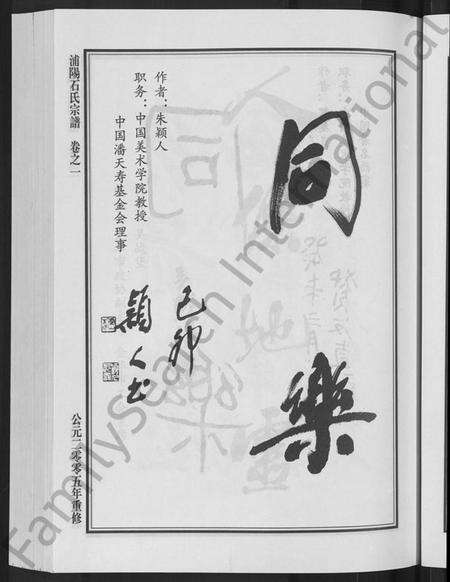 同樂
己卯
穎人书
作者：朱颖人
职务：中国美术学院教授
中国潘天寿基金会理事
浦陽石氏宗譜 卷之一
公元二零零五年重修
FamilySearch International